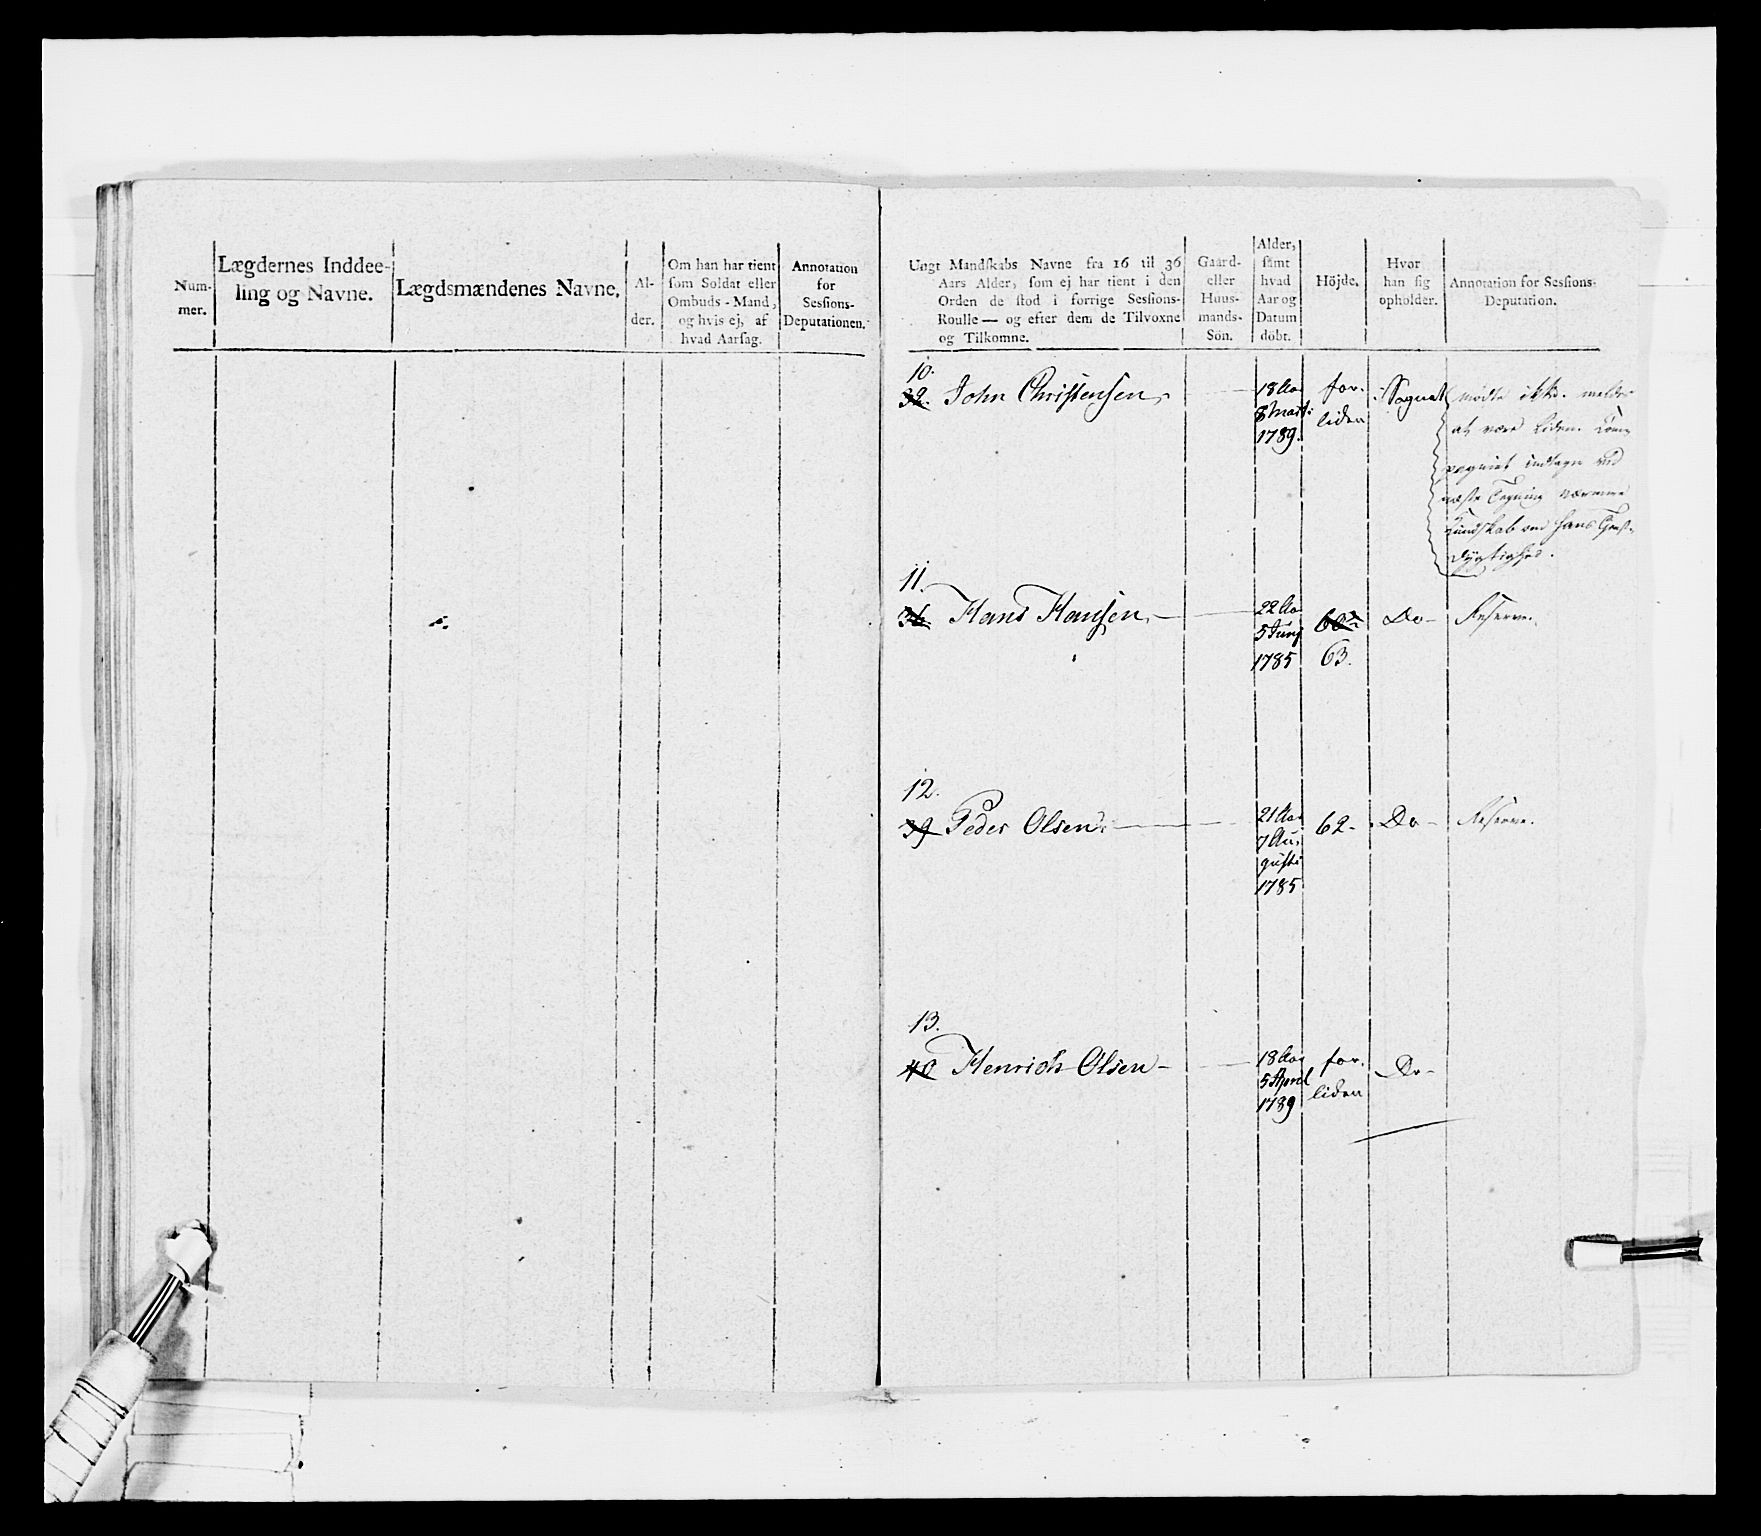 Num-
mer.
Lægdernes Inddee-
ling og Navne.
Lægdsmændenes Navne.
Al-
der.
Om han har tient
som Soldat eller
Ombuds-Mand,
og hvis ej, af
hvad Aarsag.
Annotation
for
Sessions-
Deputationen.
Ungt Mandskabs Navne fra 16 til 36
Aars Alder, som ej har tient i den
Orden de stod i forrige Sessions-
Roulle — og efter dem de Tilvoxne
og Tilkomne.
Gaard-
eller
Huus-
mands-
Sön.
Alder,
samt
hvad
Aar og
Datum
döbt.
Höjde.
Hvor
han sig
opholder.
Annotation for Sessions-
Deputation.
10.
32. John Christensen,
18 Aar
8 Marti
1789.
for-
liden
Sognet
mödte ikke. meldes
at være liden. Com-
pagniet indtager ved
næste Tegning nærmere
Kundskab om hans Tienst-
dygtighed.
11.
36. Hans Hansen,
22 Aar
5 Junj
1785
63.
Do-
Reserve.
12.
39 Peder Olsen
21 Aar
7 Au-
gusti
1785
62.
Do-
Reserve.
13.
40 Henrich Olsen-
18 Aar
5 April
1789
for-
liden
Do-